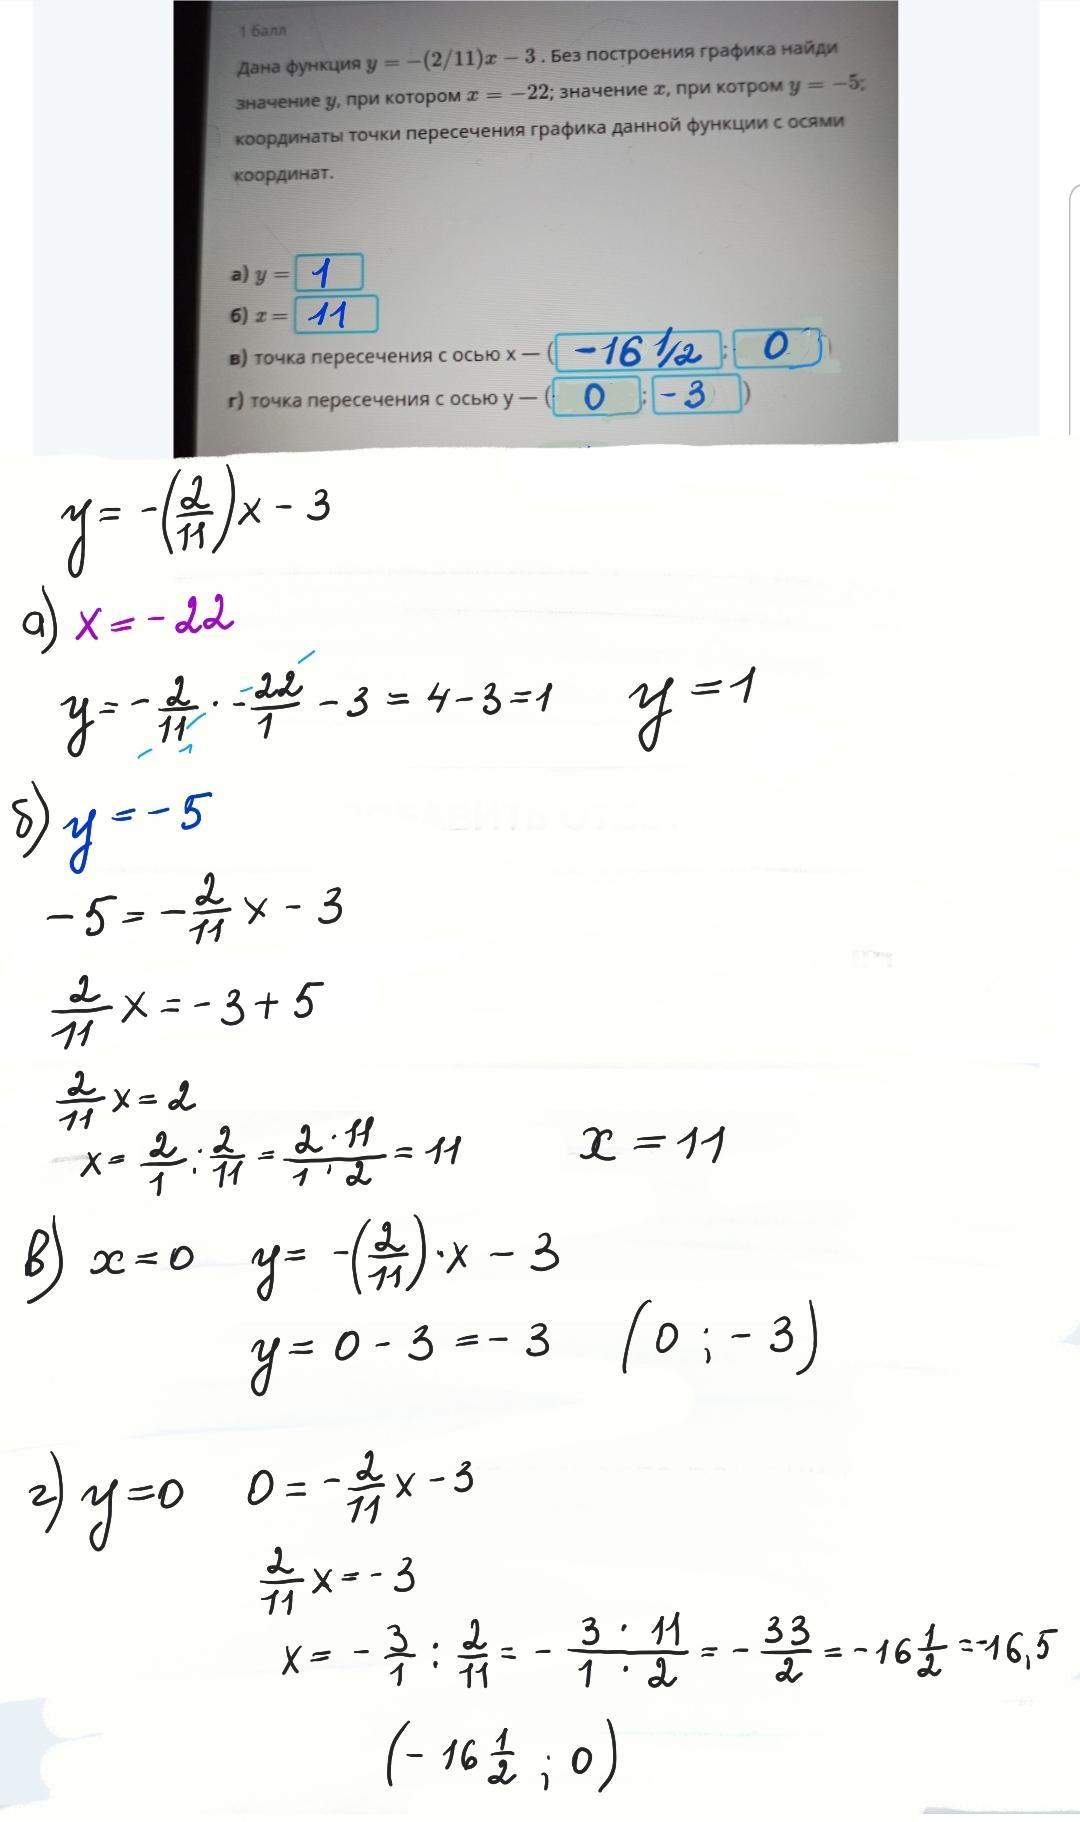 1 балл
Дана функция y = −(2/11)x − 3 . Без построения графика найди
значение y, при котором x = −22; значение x, при котром y = −5;
координаты точки пересечения графика данной функции с осями
координат.
а) y = 1
б) x = 11
в) точка пересечения с осью x — ( -16 1/2 ; 0 )
г) точка пересечения с осью y — ( 0 ; - 3 )
y = -(2/11)x - 3
а) x = - 22
y = - 2/11 · -22/1 - 3 = 4 - 3 = 1 y = 1
б) y = - 5
- 5 = - 2/11 x - 3
2/11 x = - 3 + 5
2/11 x = 2
x = 2/1 : 2/11 = 2 · 11/1 · 2 = 11 x = 11
в) x = 0 y = -(2/11) · x - 3
y = 0 - 3 = - 3 (0 ; - 3)
г) y = 0 0 = - 2/11 x - 3
2/11 x = - 3
x = - 3/1 : 2/11 = - 3 · 11/1 · 2 = - 33/2 = -16 1/2 = -16,5
(- 16 1/2 ; 0)